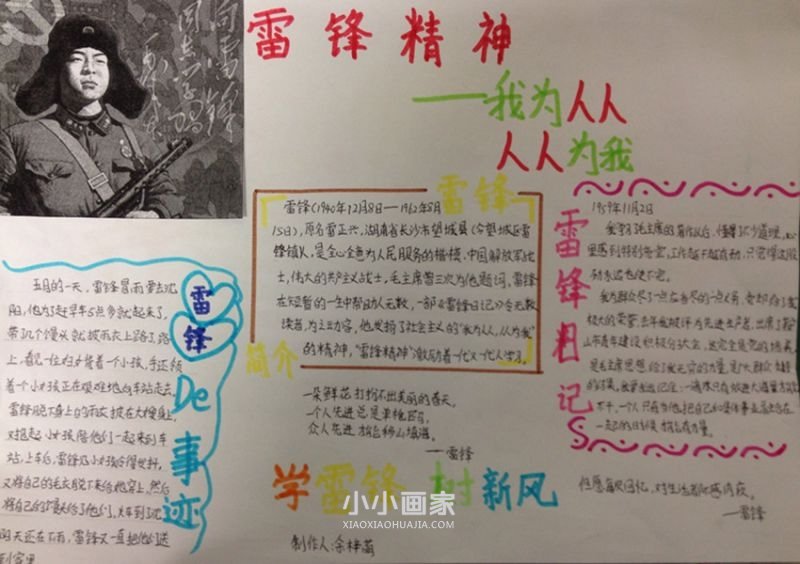 向雷锋
同志学习
毛泽东
雷锋精神
——我为人人
人人为我
雷锋
雷锋(1940年12月18日—1962年8月
15日),原名雷正兴,湖南省长沙市望城县(今望城区雷
锋镇)人,是全心全意为人民服务的楷模,中国解放军战
士,伟大的共产主义战士,毛主席曾三次为他题词,雷锋
在短暂的一生中帮助人无数,一部《雷锋日记》令无数
读者为之动容,他发扬了社会主义的"我为人人,人人为我"
的精神,"雷锋精神"激励着一代又一代人学习。
简介
一朵鲜花打扮不出美丽的春天,
一个人先进总是单枪匹马,
众人先进才能移山填海。
——雷锋
学雷锋 树新风
制作人:余梓菡
雷锋De事迹
五月的一天,雷锋冒雨要去沈
阳,他为了赶早车5点多就起来了,
带了几个馒头就披雨衣上路了,路
上,看见一位妇女背着个小孩,手还领
着个小女孩正在艰难地向车站走去,
雷锋脱下身上的雨衣披在大嫂身上,
又抱起小女孩陪他们一起来到车
站,上车后,雷锋见小女孩冷得发抖,
又将自己的毛衣脱下来给她穿上,然后
将自己的馒头给了他们,火车到了沈
阳天还在下雨,雷锋又一直把他们送
到家里
雷锋日记
1959年11月2日
里感到特别
我为群众尽了一点应当尽的一点义务,
极大的荣誉,去年我被评为先进生产者,出席了鞍
山市青年建设积极分子大会,这完全是党的培养,
是毛主席思想给了我无穷的力量,是广大群众支持
的结果,我要永远记住:一滴水只有放进大海里才能
不干,一个人只有当他把自己和集体事业融合在
一起的时候才能有力量。
——雷锋
小小画家
XIAOXIAOHUAJIA.COM